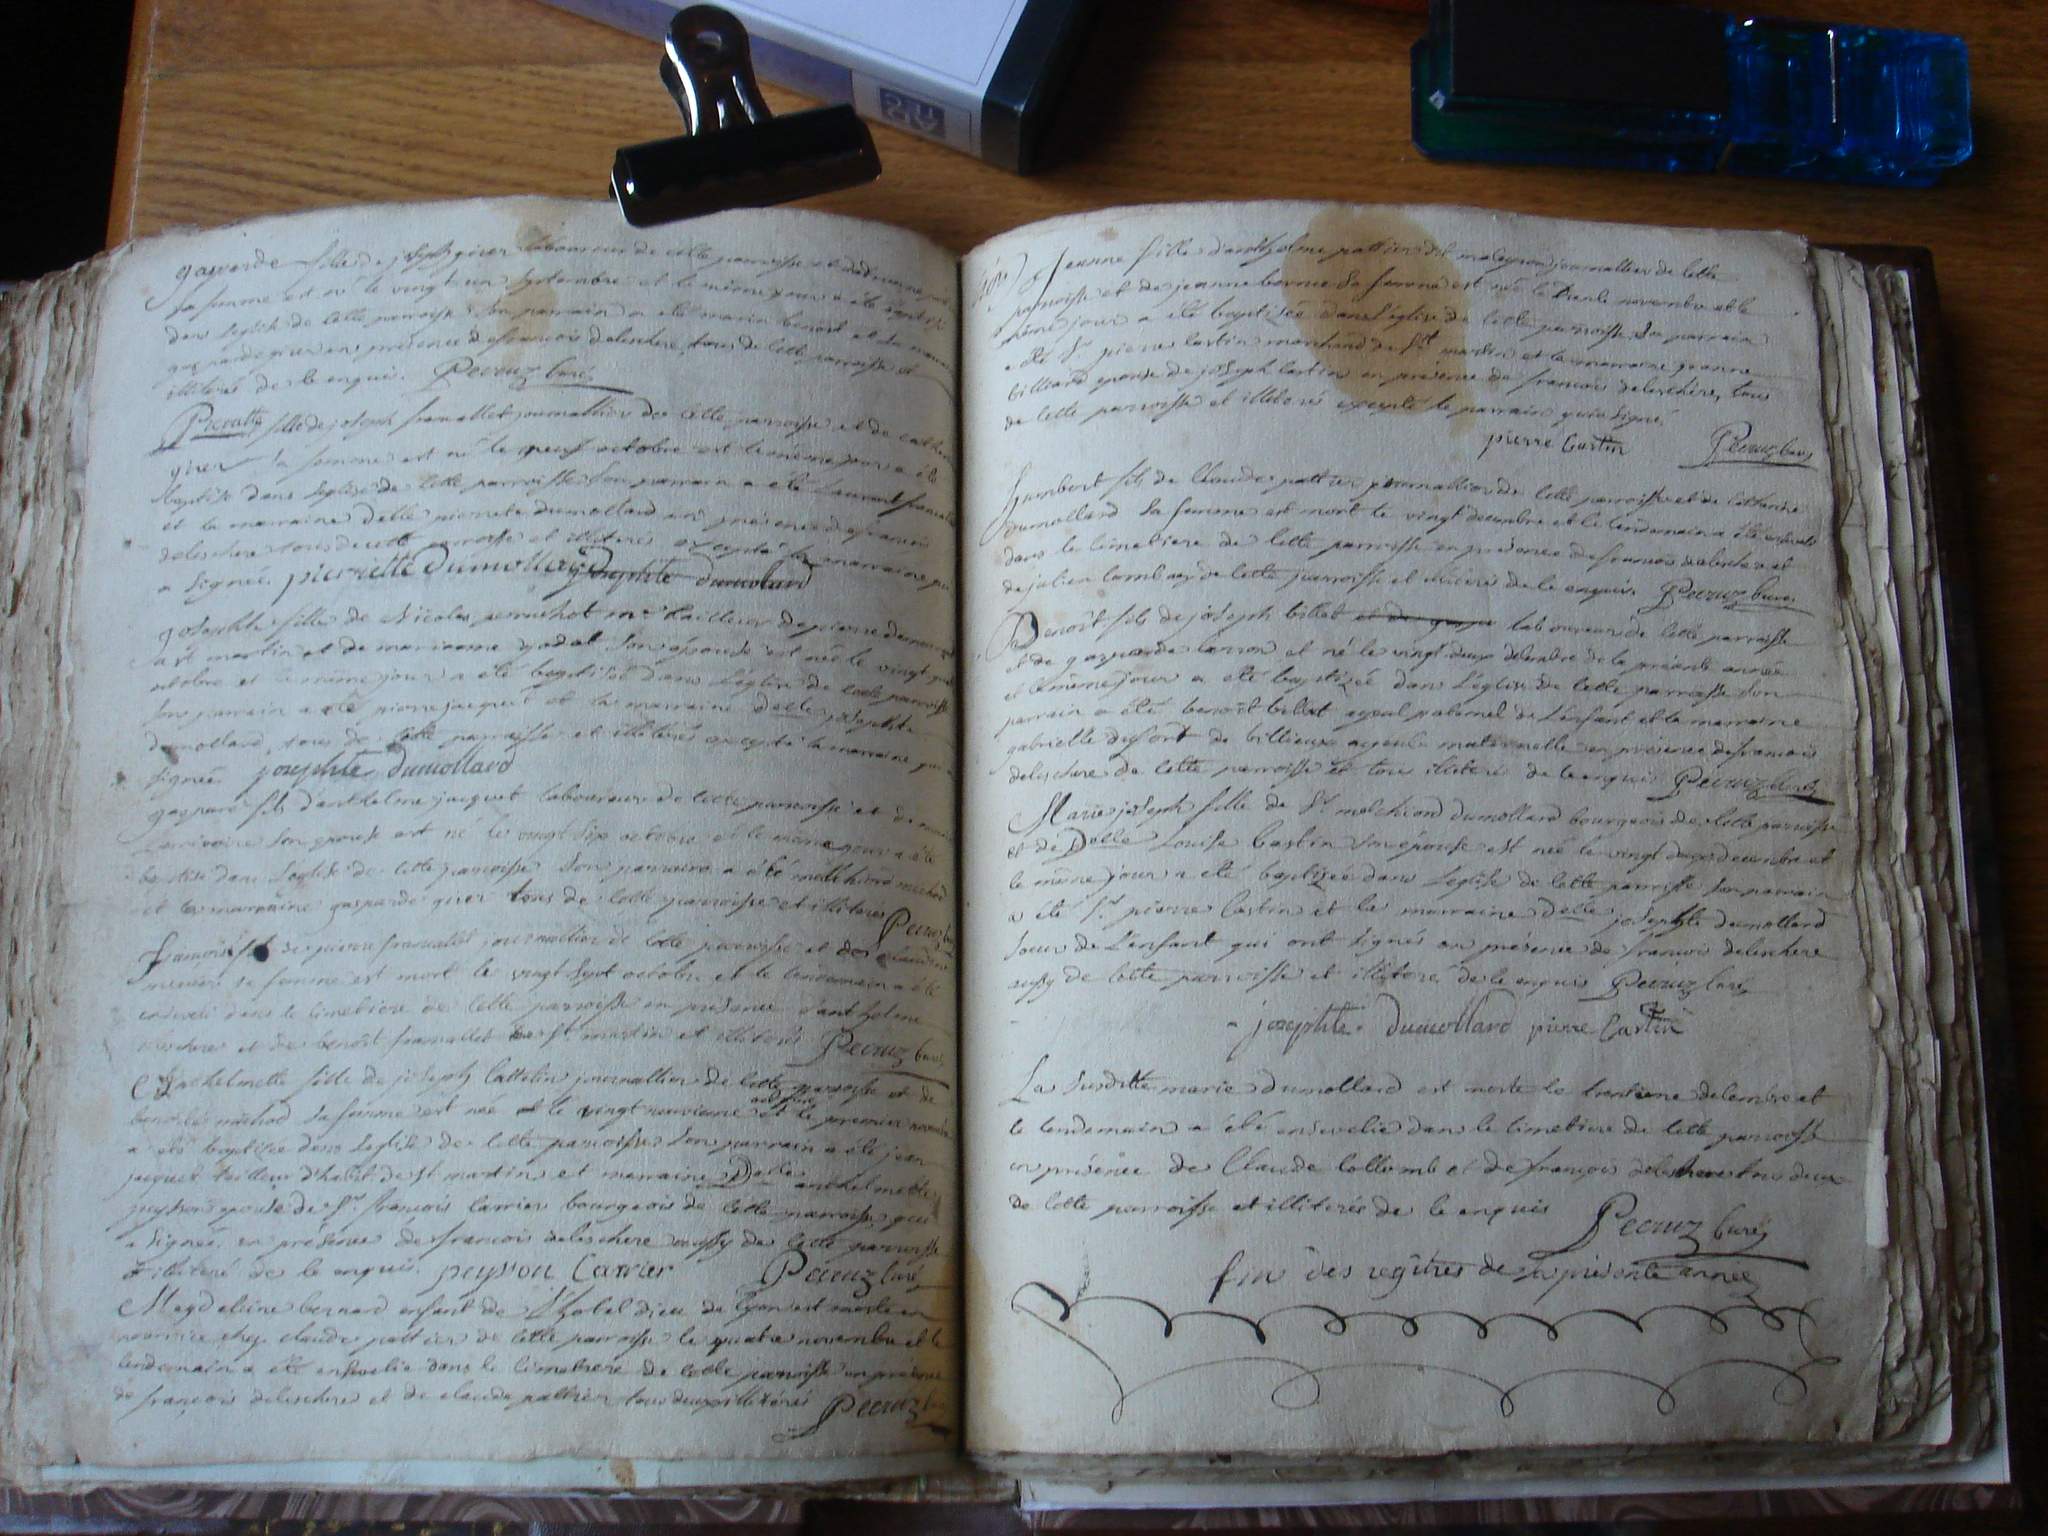 gasparde fille de joseph girer laboureur de cette parroisse et de
sa femme est né le vingt un septembre et le même jour a été baptisé
dans l'eglise de cette parroisse son parrain a été marin benoit et sa
gasparde girer en présence de francois delechere tous de cette parroisse et
illiterés de ce enquis. Pecruz Curé
Pierrette fille de joseph journallier de cette parroisse et de
girer sa femme est né le neuf octobre est le même jour a été
baptisé dans l'eglise de cette parroisse son parrain a été Laurent
et la marraine Delle pierrete dumollard en présence de francois
delechere tous de cette parroisse et illiterés excepté la marraine qui
a signée. pierrette Dumollard josephte dumolard
josephte fille de Nicolas perruchot me tailleur de pierre
a st martin et de marianne son épouse est née le vingt
octobre et le même jour a été baptisé dans l'église de cette parroisse
son parrain a été pierre jacquet et la marraine Delle josephte
dumollard, tous de cette parroisse et illiterés excepté la marraine qui a
signée josephte dumollard
gaspard fils d'anthelme jacquet laboureur de cette parroisse et de
son epouse est né le vingt six octobre et le même jour a été
baptisé dans l'église de cette parroisse son parrain a été melchiord michod
et la marraine gasparde girer tous de cette parroisse et illiterés Pecruz
francois fils de pierre journallier de cette parroisse et de claudine
mercier sa femme est mort le vingt sept octobre et le lendemain a été
enseveli dans le cimetiere de cette parroisse en présence d'anthelme
et de benoit de St. martin et illiterés Pecruz Curé
Anthelmette fille de joseph Cattelin journallier de cette parroisse et de
michod sa femme est née le vingt neuvieme octobre et le premier novembre
a été baptisée dans l'eglise de cette parroisse son parrain a été jean
jacquet tailleur d'habit de st martin et marraine Delle anthelmette
peysson epouse de Sr. francois Carrier bourgeois de cette parroisse qui
a signée en présence de francois delechere aussy de cette parroisse
et illiteré de ce enquis. peysson Carrier Pecruz Curé
Magdeleine bernard enfant de l'hotel dieu de lyon est morte en
nourrice chez claude pattier de cette parroisse le quatre novembre et le
lendemain a été ensevelie dans le cimetiere de cette parroisse en présence
de francois delechere et de claude pattier tous deux illiterés Pecruz
Jeanne fille d'anthelme pattier dit journallier de cette
parroisse et de jeanne bernier sa femme est née le trente novembre et le
même jour a été baptisée dans l'église de cette parroisse son parrain
a été Sr. pierre Castin marchand de St martin et la marraine jeanne
billiard epouse de joseph Castin en présence de francois delechere, tous
de cette parroisse et illiterés excepté le parrain qui a signé.
pierre Castin Pecruz Curé
humbert fils de Claude pattier journallier de cette parroisse et de Catherine
dumollard sa femme est mort le vingt decembre et le lendemain a été enseveli
dans le cimetiere de cette parroisse en présence de francois delechere et
de julien de cette parroisse et illiterés de ce enquis. Pecruz Curé
Benoît fils de joseph billet laboureur de cette parroisse
et de gasparde est né le vingt deux decembre de la présente année
et le même jour a été baptizée dans l'église de cette parroisse son
parrain a été benoît billet ayeul paternel de l'enfant et la marraine
gabrielle dufort de billieux ayeule maternelle en présence de francois
delechere de cette parroisse et tous illiteré de ce enquis Pecruz Curé
Marie joseph fille de Sr. melchiord dumollard bourgeois de cette parroisse
et de Delle Louise Castin son épouse est née le vingt decembre et
le même jour a été baptizée dans l'eglise de cette parroisse son parrain
a été Sr. pierre Castin et la marraine Delle josephte dumollard
soeur de l'enfant qui ont signés en présence de francois delechere
aussy de cette parroisse et illiteré de ce enquis Pecruz Curé
josephte dumollard pierre Castin
La susditte marie dumollard est morte le trentieme decembre et
le lendemain a été ensevelie dans le cimetiere de cette parroisse
en présence de Claude Collomb et de francois delechere tous deux
de cette parroisse et illiterés de ce enquis Pecruz Curé
fin des regîtres de la présente année